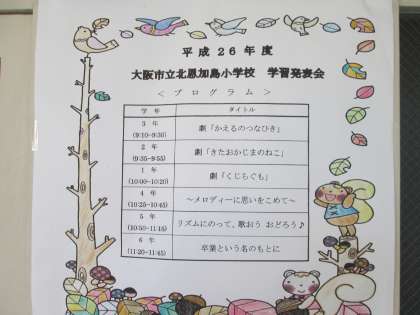 平成２６年度
大阪市立北恩加島小学校　学習発表会
＜プログラム＞
学年　タイトル
３年　劇「かえるのつなひき」
(9:10-9:30)
２年　劇「きたおかじまのねこ」
(9:35-9:55)
１年　劇「くじらぐも」
(10:00-10:20)
４年　～メロディーに思いをこめて～
(10:25-10:45)
５年　リズムにのって、歌おう おどろう♪
(10:50-11:15)
６年　卒業という名のもとに
(11:20-11:45)